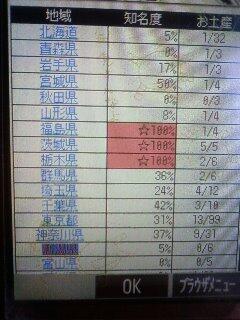 地域 知名度 お土産
北海道 5% 1/32
青森県 0% 1/3
岩手県 17% 1/3
宮城県 50% 1/4
秋田県 0% 0/3
山形県 8% 1/4
福島県 ☆100% 1/4
茨城県 ☆100% 5/5
栃木県 ☆100% 2/6
群馬県 36% 2/6
埼玉県 24% 4/12
千葉県 42% 3/10
東京都 31% 13/99
神奈川県 37% 9/31
5% 0/6
富山県 0% 0/5
OK ブラウザメニュー